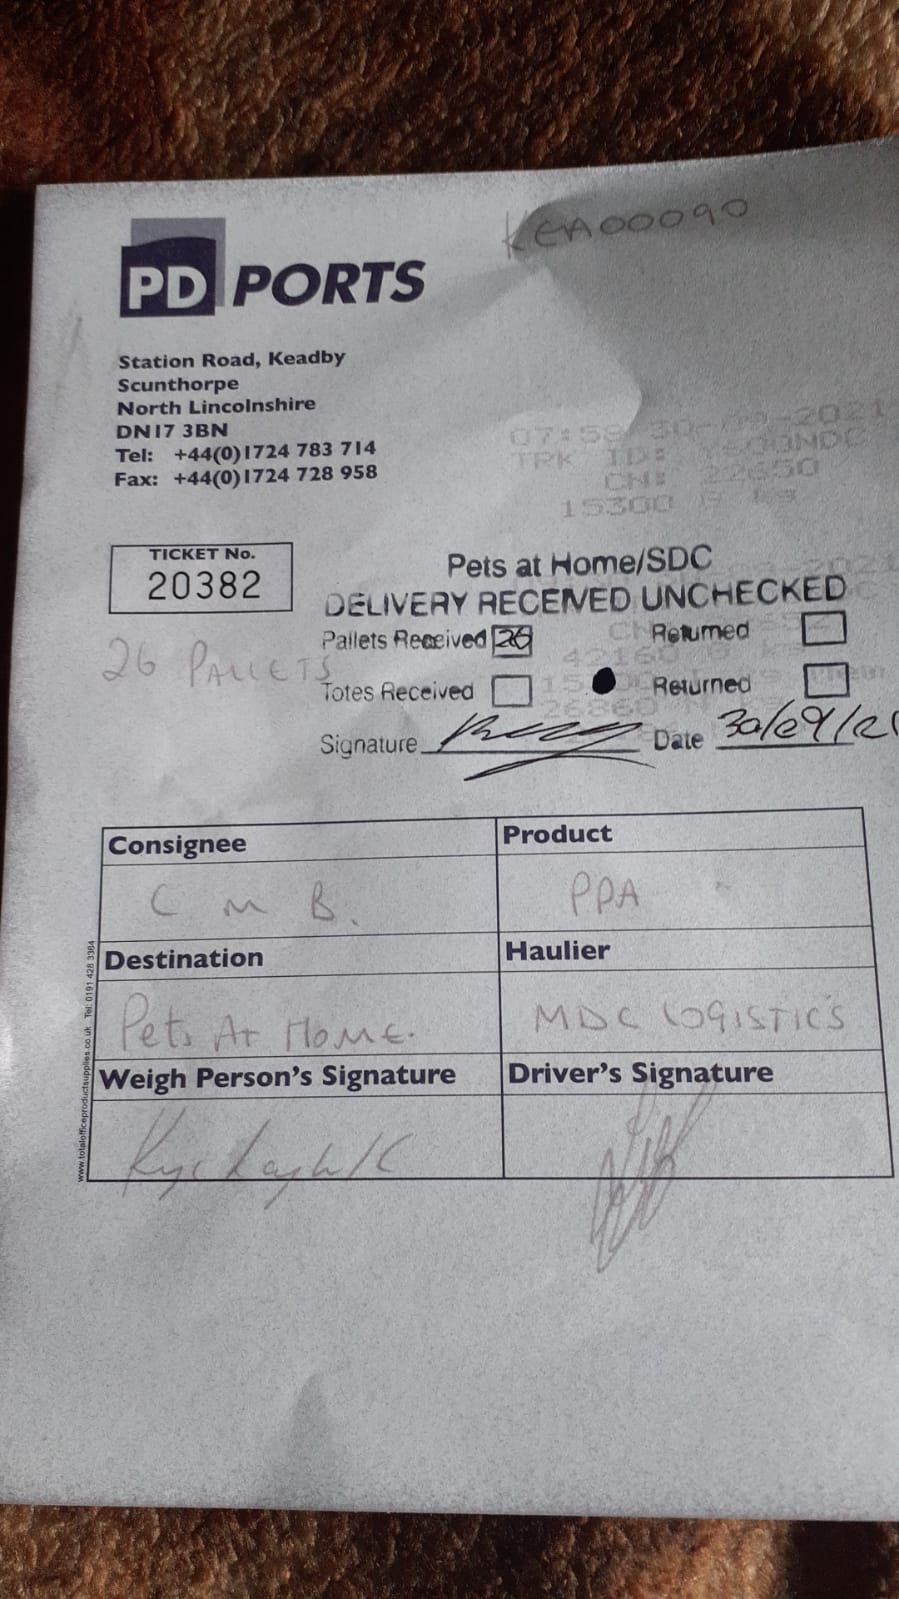 KEA00090
PD PORTS
Station Road, Keadby
Scunthorpe
North Lincolnshire
DN17 3BN
Tel: +44(0)1724 783 714
Fax: +44(0)1724 728 958
07:58 30-09-2021
TRK ID:
CN: 22650
15300 G kg
TICKET No.
20382
26 PALLETS
Pets at Home/SDC
DELIVERY RECEIVED UNCHECKED
Pallets Received 26 Returned
Totes Received Returned
42160 G
26860
Signature Date 30/09/21
Consignee Product
C M B. PPA
Destination Haulier
Pets At Home. MDC LOGISTICS
Weigh Person's Signature Driver's Signature
www.totalofficeproductsupplies.co.uk Tel: 0191 428 3364